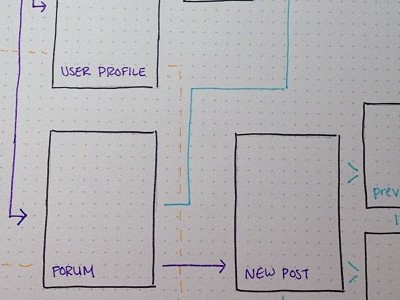 USER PROFILE
FORUM
NEW POST
prev